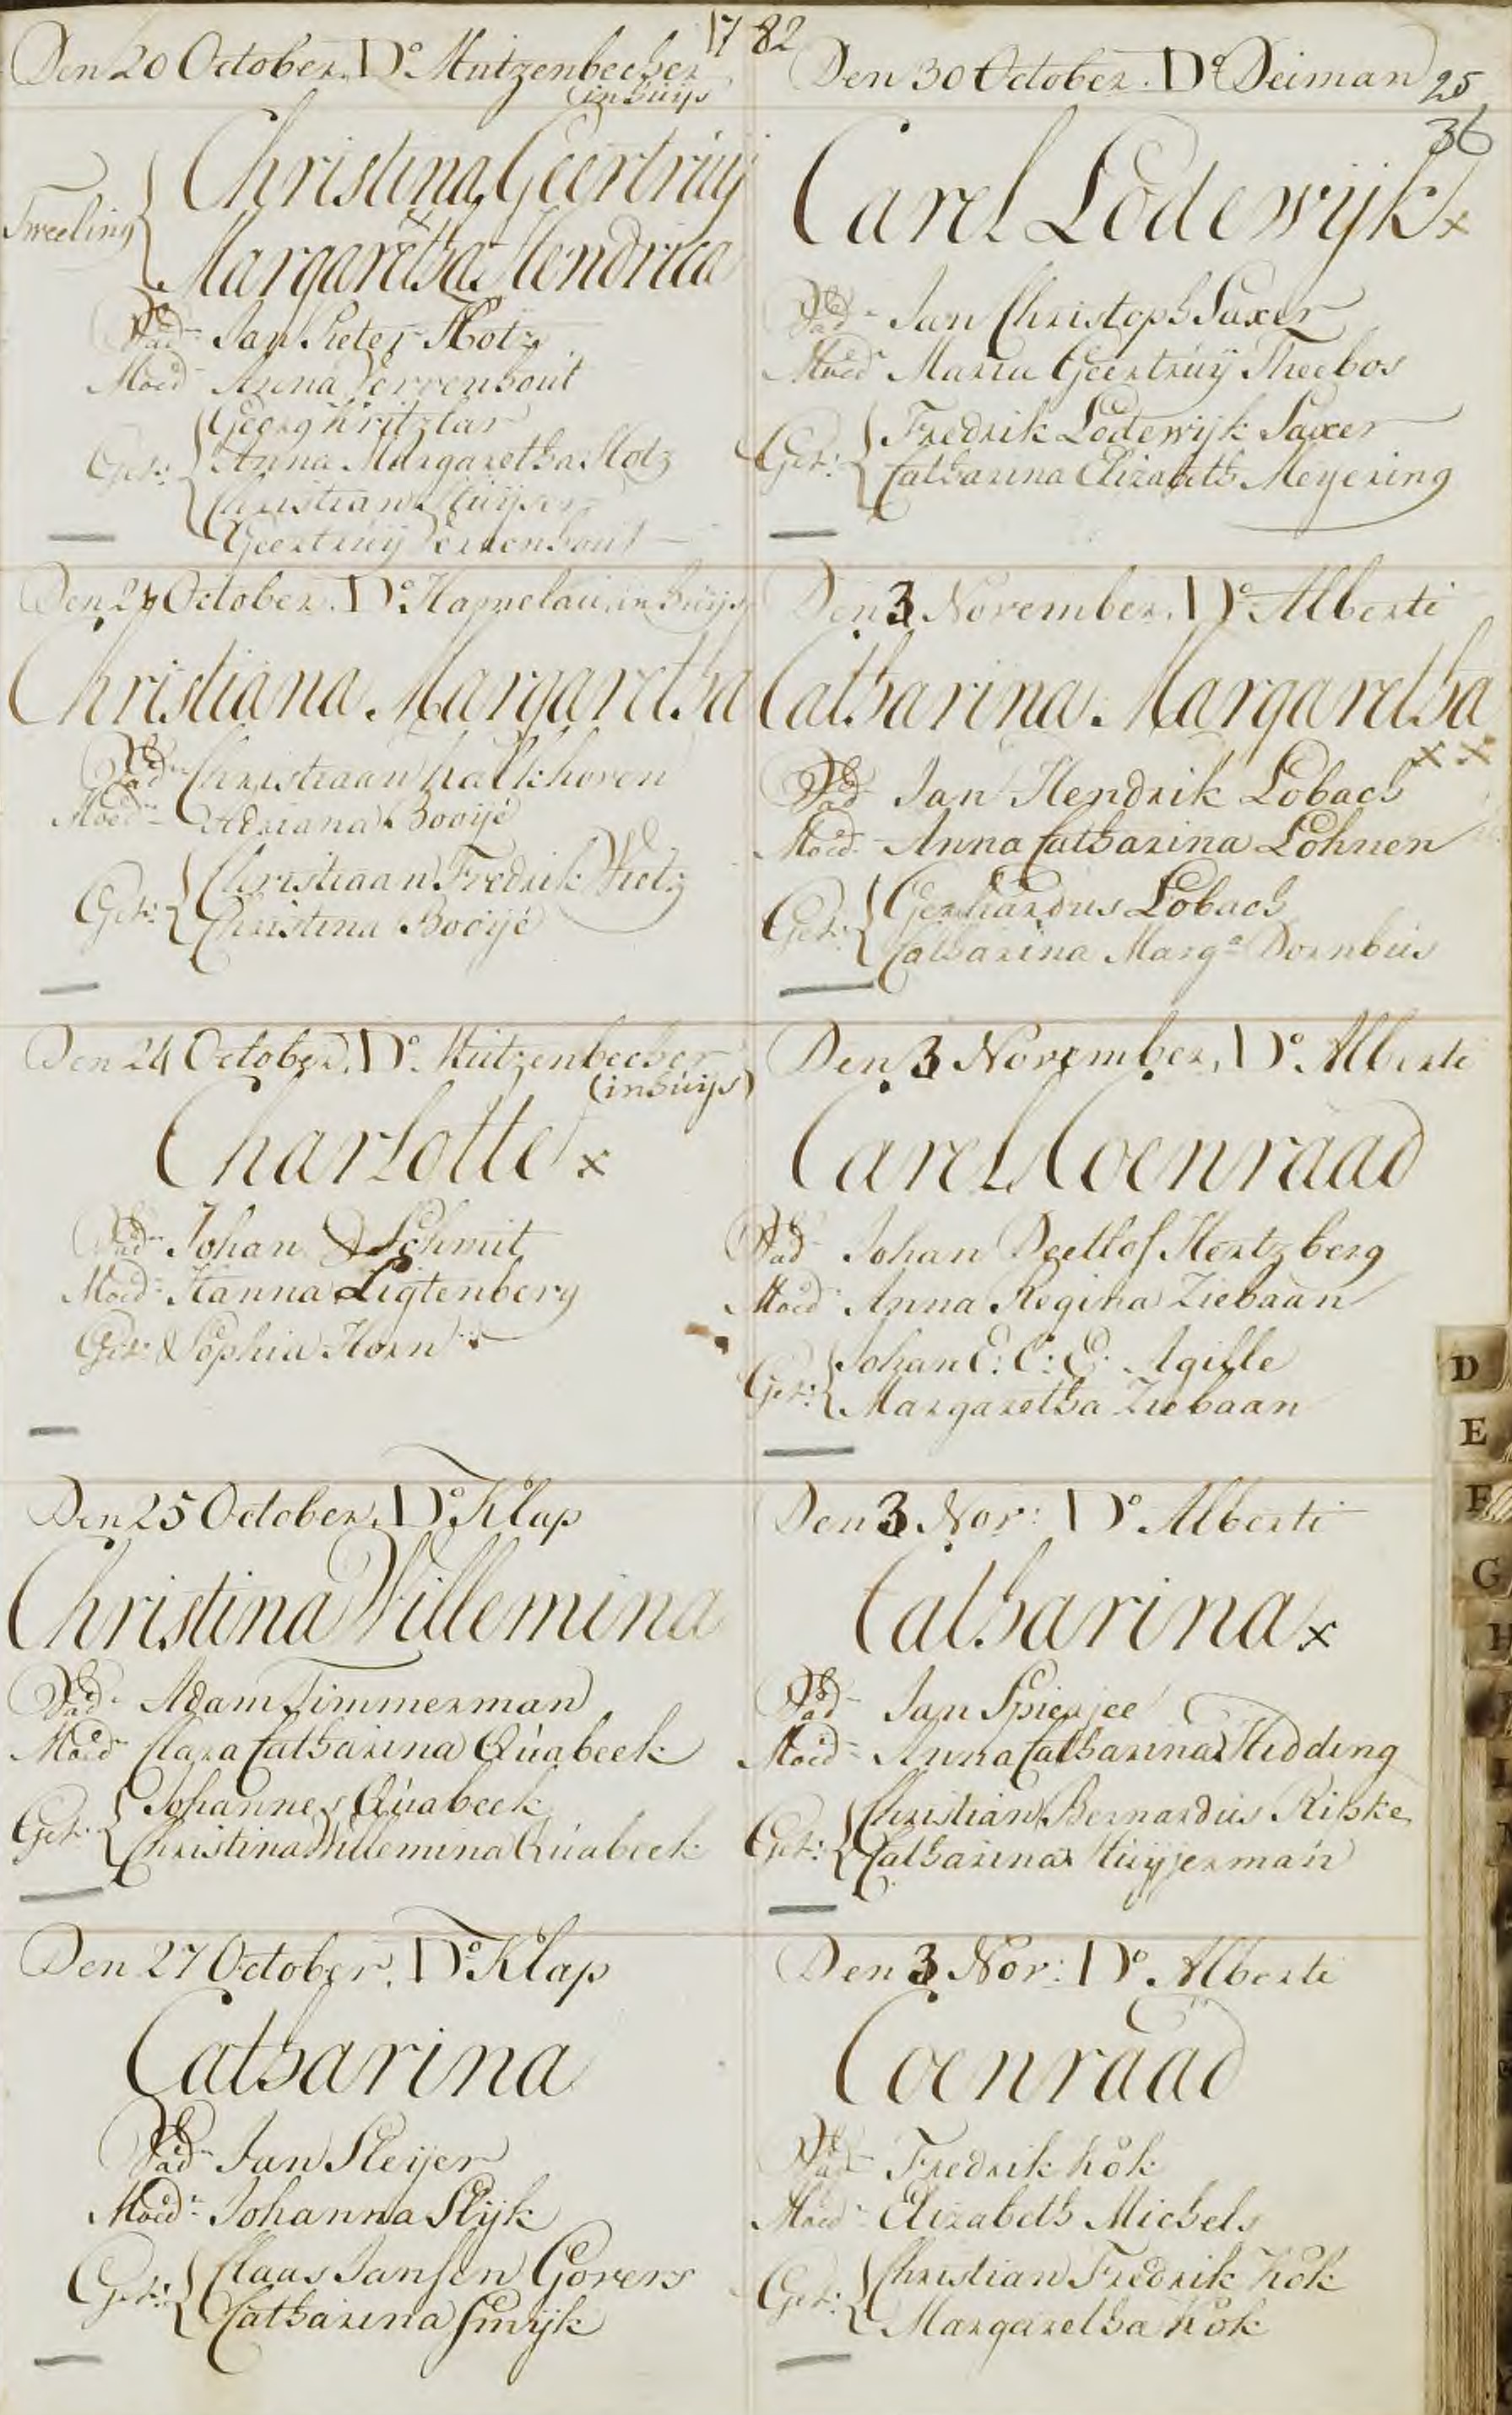 1782
Den 20 October. Do. Mutzenbecher
(in huijs)
Tweeling
Christina Geertruij
Margaretha Hendrica
Vad. Jan Pieter Hotz
Moed. Anna Verrenhout
Get: Georg Kritzlar
Anna Margaretha Hotz
Christian
Geertruij Verrenhout
Den 24 October. Do. Hamelau, in huijs
Christiana Margaretha
Vad. Christiaan Kalkhoven
Moed. Adriana Booijé
Get: Christiaan Fredrik Vietz
Christina Booijé
Den 24 October, Do. Mutzenbecher
(in huijs)
Charlotte x
Vad. Johan Schmit
Moed. Hanna Ligtenberg
Get: Sophia Horn
Den 25 October, Do. Klap
Christina Willemina
Vad. Adam Timmerman
Moed. Clara Catharina Quabeek
Get: Johannes Quabeek
Christina Willemina Quabeek
Den 27 October, Do. Klap
Catharina
Vad. Jan Sleijer
Moed. Johanna Slijk
Get: Claas Jansen Govers
Catharina Smijk
Den 30 October. Do. Deiman
25
36
Carel Lodewijk x
Vad. Jan Christoph Saxer
Moed. Maria Geertruij Theebos
Get: Fredrik Lodewijk Saxer
Catharina Elizabeth Meyering
Den 3 November, Do. Alberti
Catharina Margaretha
x x
Vad. Jan Hendrik Lobach
Moed. Anna Catharina Lohnen
Get: Gerhardus Lobach
Catharina Marga. Dornbus
Den 3 November, Do. Alberti
Carel Coenraad
Vad. Johan Deetlof Hertzberg
Moed. Anna Regina Ziebaan
Get: Johan E: C: E. Agille
Margaretha Ziebaan
Den 3 Nov: Do. Alberti
Catharina x
Vad. Jan Spierjee
Moed. Anna Catharina Hidding
Get: Christian Bernardus Ribke
Catharina Huijjerman
Den 3 Nov: Do. Alberti
Coenraad
Vad. Fredrik Kok
Moed. Elizabeth Michels
Get: Christian Fredrik Kok
Margaretha Kok
D
E
F
G
H